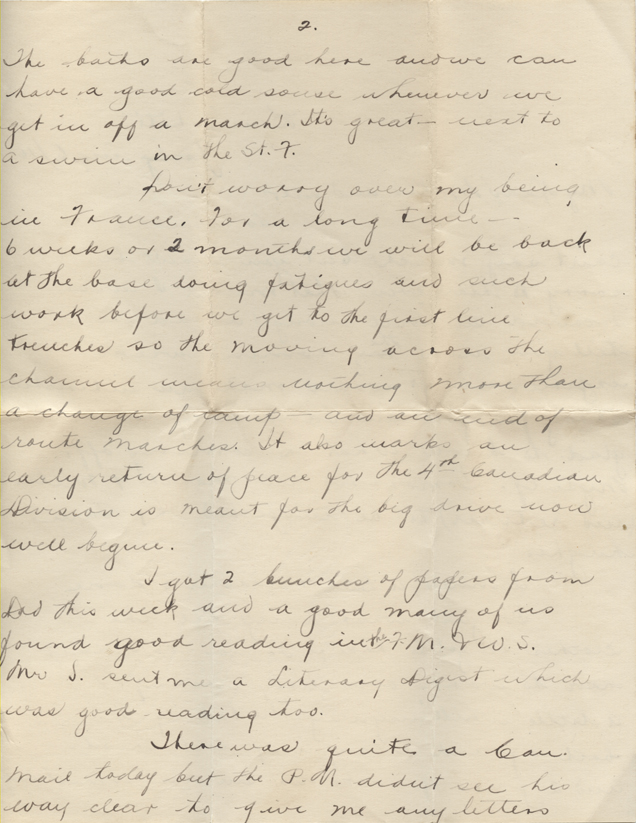 2.
The baths are good here and we can
have a good cold souse whenever we
get in off a march. It's great— next to
a swim in the St. F.
Don't worry over my being
in France. For a long time—
6 weeks or 2 months we will be back
at the base doing fatigues and such
work before we get to the first line
trenches so the moving across the
channel means nothing more than
a change of camp — and an end of
route marches. It also marks an
early return of peace for the 4th Canadian
Division is meant for the big drive now
well begun.
I got 2 bunches of papers from
Dad this week and a good many of us
found good reading in the F. M. & W. S.
Mr S. sent me a Literary Digest which
was good reading too.
There was quite a Can.
mail today but the P.M. didn't see his
way clear to give me any letters